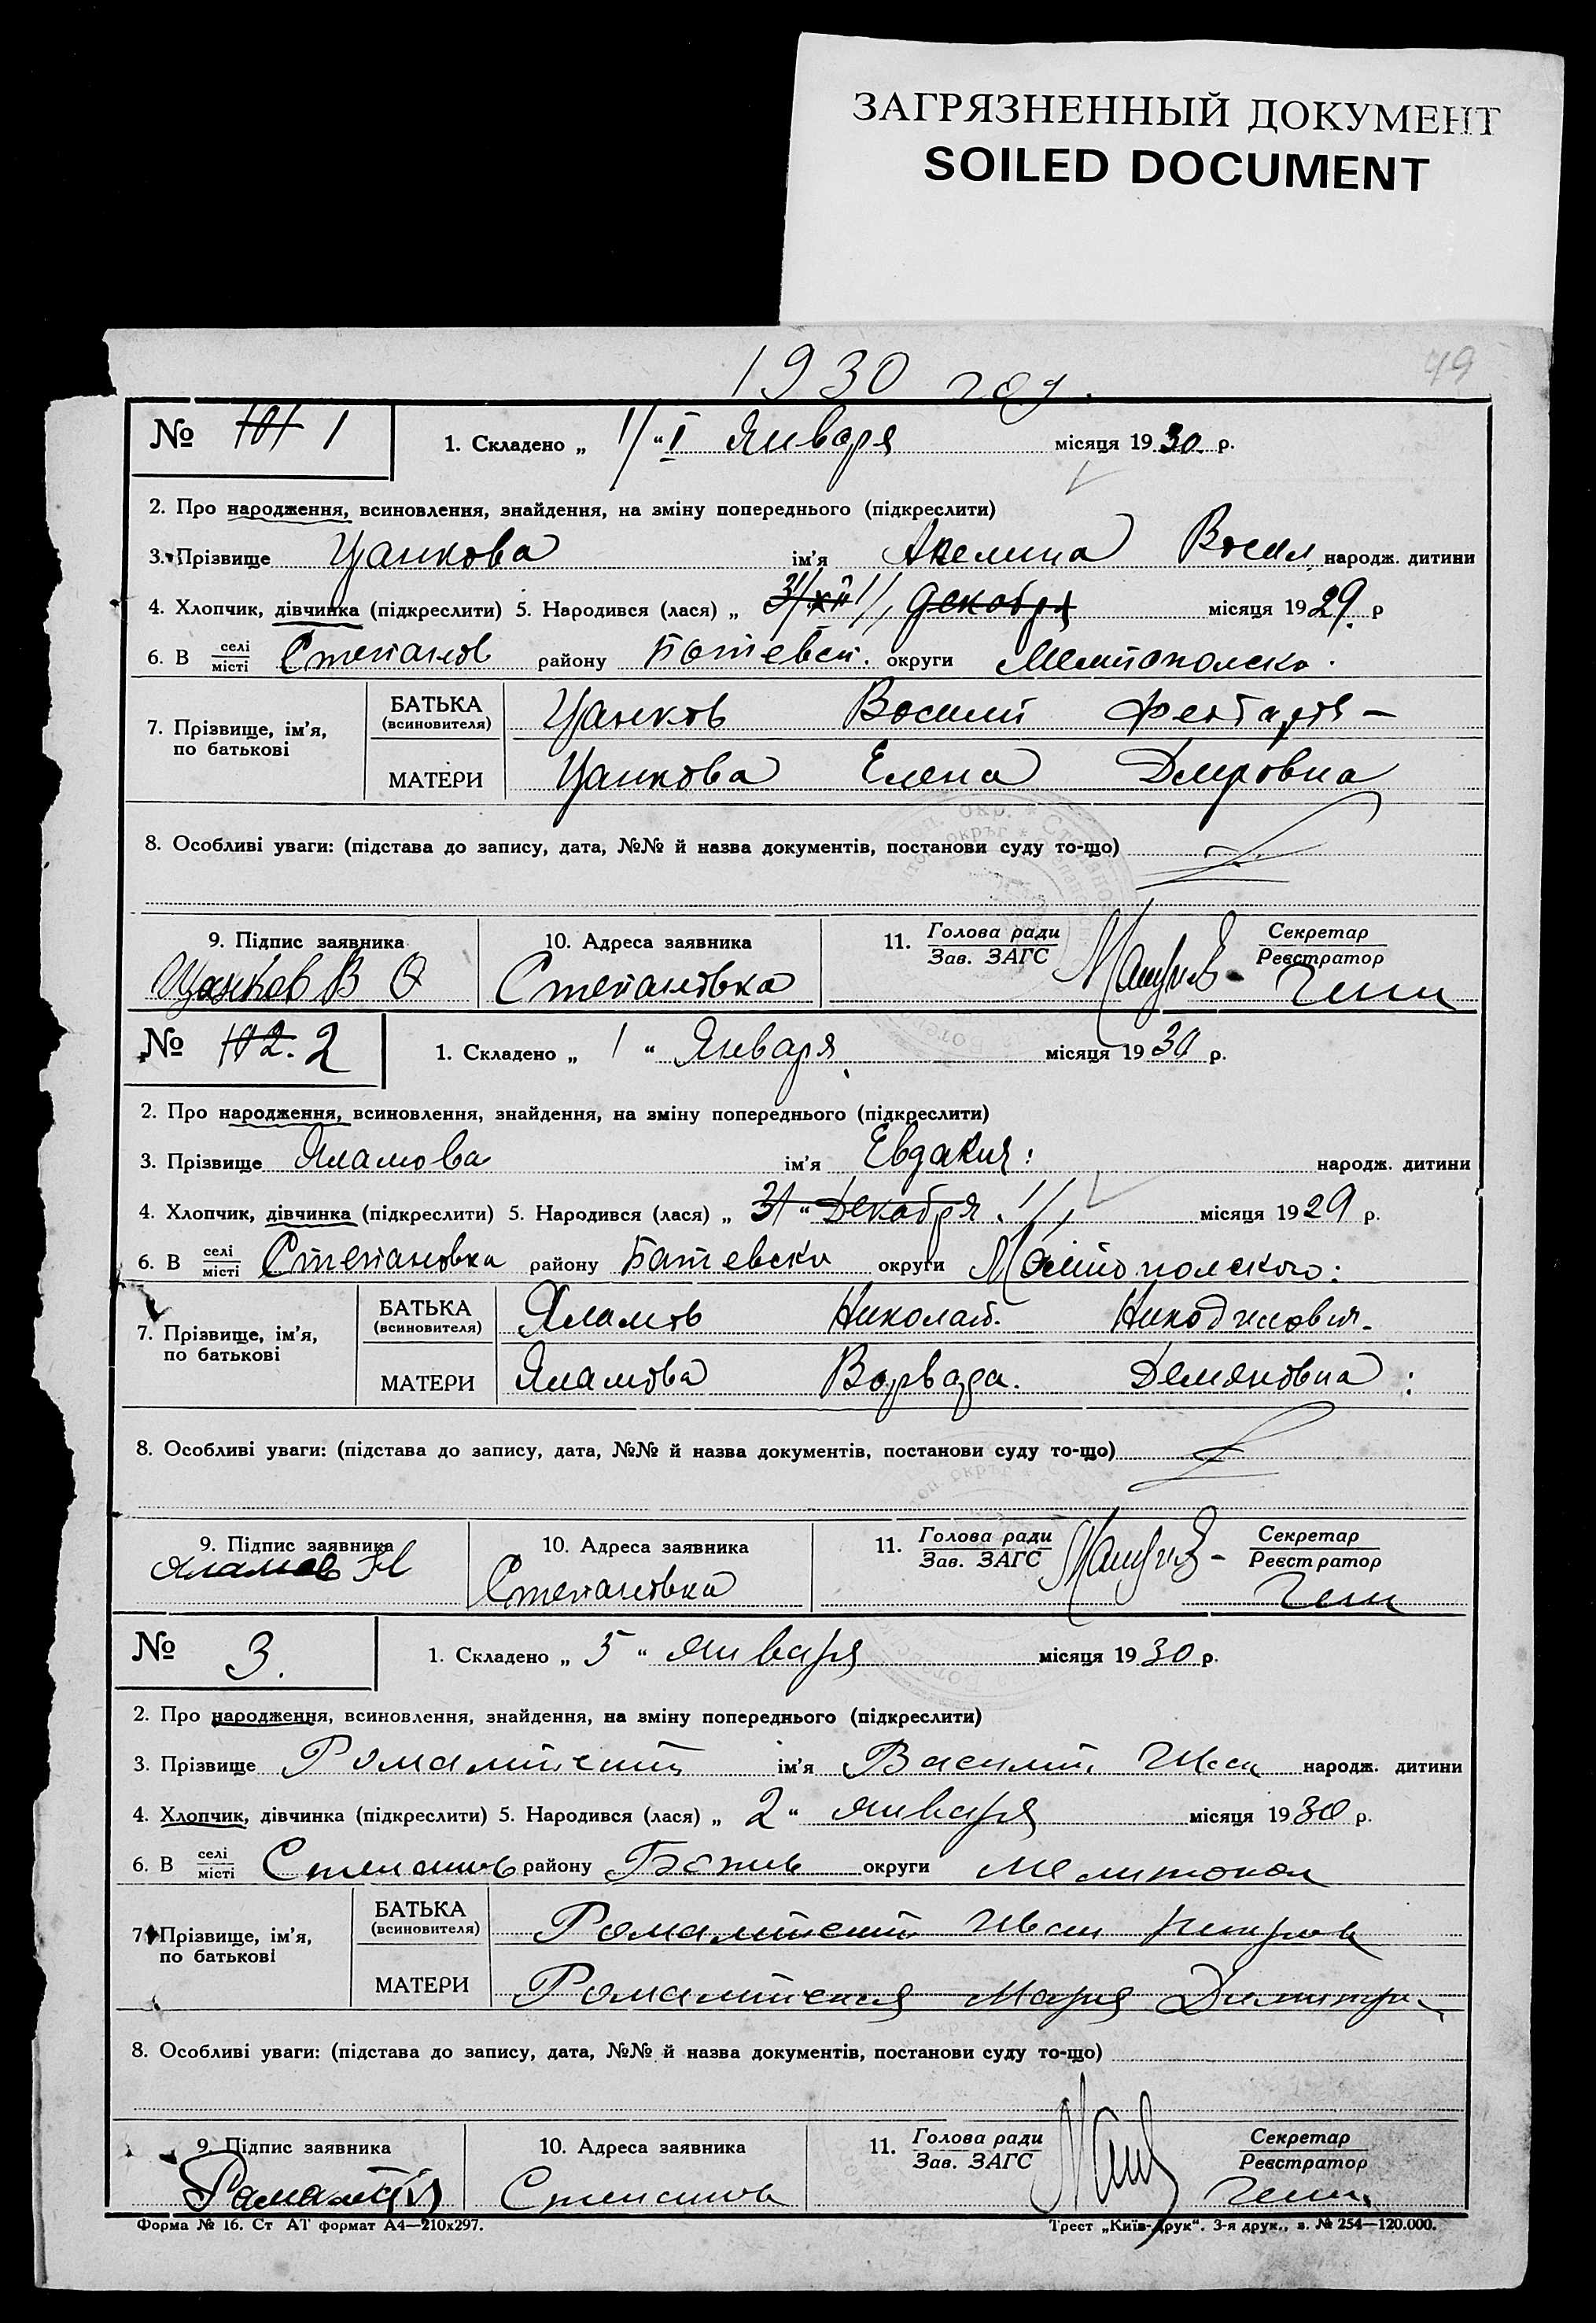 ЗАГРЯЗНЕННЫЙ ДОКУМЕНТ
SOILED DOCUMENT
1930 год.
49
№ 101 1 1. Складено „ 1/ “ I Января місяця 1930 р.
2. Про народження, всиновлення, знайдення, на зміну попереднього (підкреслити)
3. Прізвище Цанкова ім’я народж. дитини
4. Хлопчик, дівчинка (підкреслити) 5. Народився (лася) „ 31/XII 1/I декабря місяця 1929. р
6. В селі/місті Степанов району Ботевск. округи Мелитополско.
7. Прізвище, ім’я, по батькові БАТЬКА (всиновителя) Цанков Восилий
МАТЕРИ Цанкова Елена
8. Особливі уваги: (підстава до запису, дата, №№ й назва документів, постанови суду то-що)
9. Підпис заявника 10. Адреса заявника 11. Голова ради/Зав. ЗАГС Секретар/Реєстратор
Цанков В Ф Степановка
№ 102. 2 1. Складено „ 1 “ Января місяця 1930 р.
2. Про народження, всиновлення, знайдення, на зміну попереднього (підкреслити)
3. Прізвище Яламова ім’я Евдакия: народж. дитини
4. Хлопчик, дівчинка (підкреслити) 5. Народився (лася) „ 31 “ Декабря. 1/I місяця 1929 р.
6. В селі/місті Степановка району Ботевско округи Мелитополского:
7. Прізвище, ім’я, по батькові БАТЬКА (всиновителя) Яламов Николай.
МАТЕРИ Яламова Ворвара. Демяновна:
8. Особливі уваги: (підстава до запису, дата, №№ й назва документів, постанови суду то-що)
9. Підпис заявника 10. Адреса заявника 11. Голова ради/Зав. ЗАГС Секретар/Реєстратор
Яламов Н Степановка
№ 3. 1. Складено „ 5 “ января місяця 1930 р.
2. Про народження, всиновлення, знайдення, на зміну попереднього (підкреслити)
3. Прізвище ім’я Василий Иван народж. дитини
4. Хлопчик, дівчинка (підкреслити) 5. Народився (лася) „ 2 “ января місяця 1930 р.
6. В селі/місті Степанов району Ботев округи Мелитопол
7. Прізвище, ім’я, по батькові БАТЬКА (всиновителя) Иван Петров
МАТЕРИ Мария Димитри
8. Особливі уваги: (підстава до запису, дата, №№ й назва документів, постанови суду то-що)
9. Підпис заявника 10. Адреса заявника 11. Голова ради/Зав. ЗАГС Секретар/Реєстратор
Степанов
Форма № 16. Ст АТ формат А4—210х297. Трест „Київ-Друк“. 3-я друк., з. № 254—120.000.